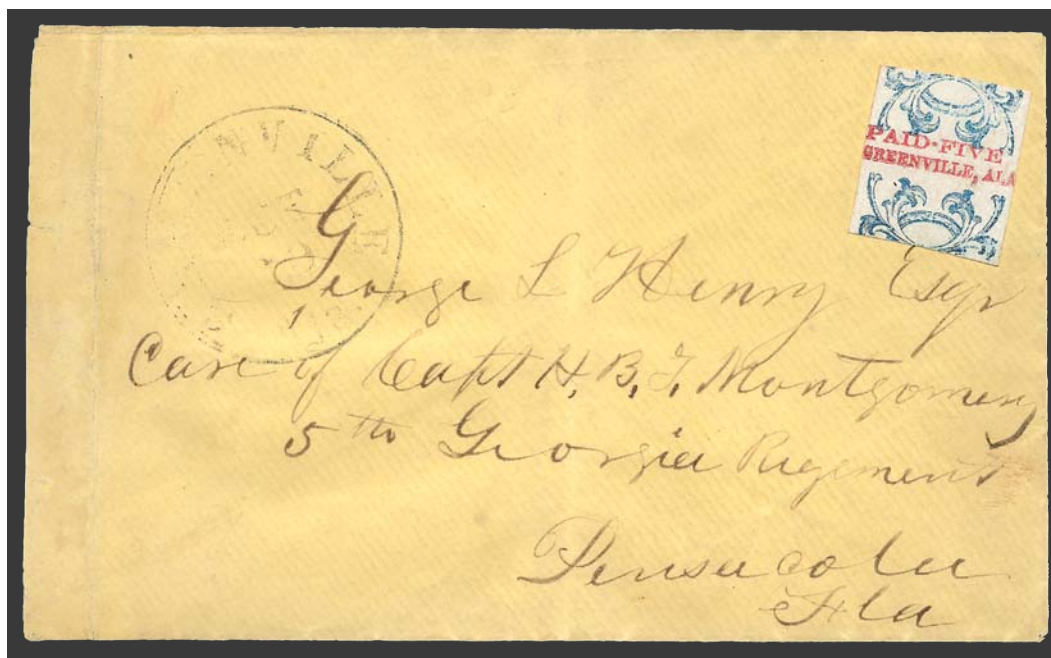 PAID·FIVE
GREENVILLE, ALA
NVILLE
George L Henry Esqr
Care of Capt H. B. T. Montgomery
5th Georgia Regement
Pensacola
Fla